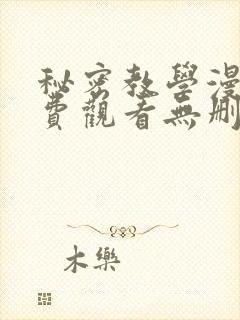 秘密教學漫
費觀看無刪
木樂